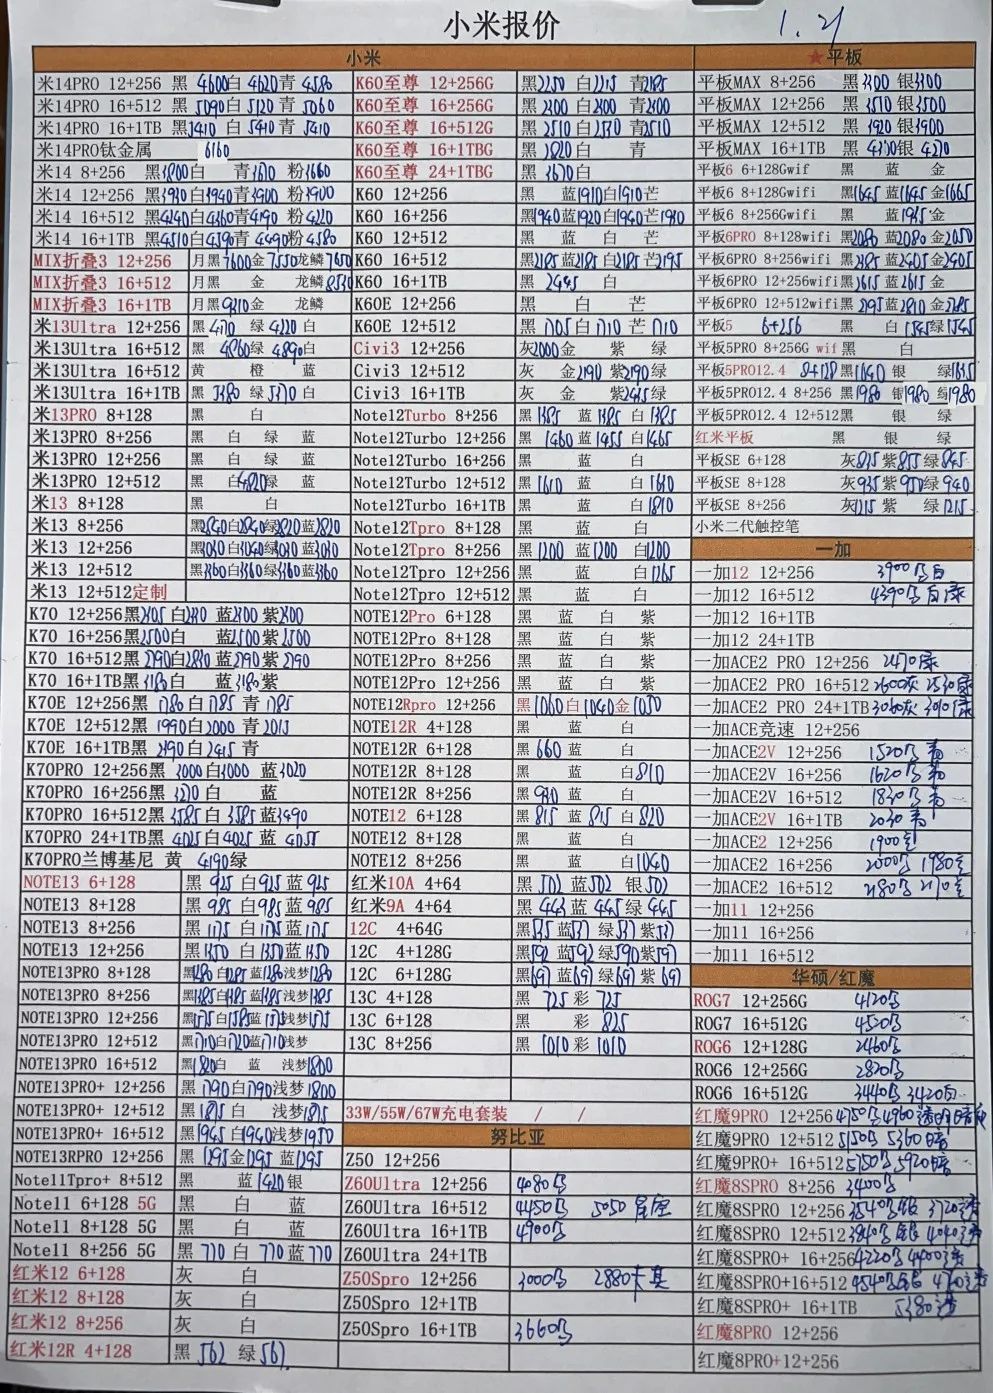 小米报价
1.21
小米
米14PRO 12+256 黑 4600 白 4620 青 4580
米14PRO 16+512 黑 5090 白 5120 青 5060
米14PRO 16+1TB 黑 5410 白 5410 青 5410
米14PRO钛金属 6160
米14 8+256 黑 白 青 粉3660
米14 12+256 黑3920 白3940 青3900 粉3900
米14 16+512 黑4240 白 青4190 粉4220
米14 16+1TB 黑4510 白4590 青4490 粉4580
MIX折叠3 12+256 月黑7600 金7550 龙鳞7650
MIX折叠3 16+512 月黑 金 龙鳞8530
MIX折叠3 16+1TB 月黑9210 金 龙鳞
米13Ultra 12+256 黑 绿4220 白
米13Ultra 16+512 黑 4860 绿 4890 白
米13Ultra 16+512 黄 橙 蓝
米13Ultra 16+1TB 黑 绿 白
米13PRO 8+128 黑 白
米13PRO 8+256 黑 白 绿 蓝
米13PRO 12+256 黑 白 绿 蓝
米13PRO 12+512 黑 白4820 绿 蓝
米13 8+128 黑 白
米13 8+256 黑2840 白2840 绿2820 蓝2820
米13 12+256 黑3030 白3040 绿3030 蓝3030
米13 12+512 黑3360 白3360 绿3360 蓝3360
米13 12+512定制
K70 12+256 黑 白 蓝2400 紫2400
K70 16+256 黑2500 白 蓝2500 紫2500
K70 16+512 黑2790 白 蓝2790 紫2790
K70 16+1TB 黑3180 白 蓝3180 紫
K70E 12+256 黑 1780 白 1785 青 1785
K70E 12+512 黑 1990 白2000 青 2015
K70E 16+1TB 黑 白2415 青
K70PRO 12+256 黑 3000 白3000 蓝3020
K70PRO 16+256 黑 3270 白 蓝
K70PRO 16+512 黑3585 白 3585 蓝3490
K70PRO 24+1TB 黑 4025 白4025 蓝 4055
K70PRO兰博基尼 黄 4190 绿
NOTE13 6+128 黑 925 白 925 蓝 925
NOTE13 8+128 黑 985 白 985 蓝 985
NOTE13 8+256 黑 1175 白 1175 蓝 1175
NOTE13 12+256 黑1350 白 1350 蓝1350
NOTE13PRO 8+128 黑1280 白1285 蓝1280 浅梦1280
NOTE13PRO 8+256 黑1385 白1385 蓝1385 浅梦1385
NOTE13PRO 12+256 黑1575 白1585 蓝1575 浅梦1575
NOTE13PRO 12+512 黑1710 白1720 蓝1710 浅梦
NOTE13PRO 16+512 黑1820 白 蓝 浅梦1800
NOTE13PRO+ 12+256 黑 1790 白1790 浅梦1800
NOTE13PRO+ 12+512 黑1875 白 浅梦1875
NOTE13PRO+ 16+512 黑1945 白1940 浅梦1950
NOTE13RPRO 12+256 黑 1295 金1295 蓝1295
Note11Tpro+ 8+512 黑 蓝1420 银
Note11 6+128 5G 黑 白 蓝
Note11 8+128 5G 黑 白 蓝
Note11 8+256 5G 黑 770 白 770 蓝 770
红米12 6+128 灰 白
红米12 8+128 灰 白
红米12 8+256 灰 白
红米12R 4+128 黑 562 绿 562
K60至尊 12+256G 黑2250 白2215 青2185
K60至尊 16+256G 黑2300 白2300 青2300
K60至尊 16+512G 黑2510 白2530 青2510
K60至尊 16+1TBG 黑2820 白 青
K60至尊 24+1TBG 黑 白
K60 12+256 黑 蓝1910 白1910 芒
K60 16+256 黑1940 蓝1920 白1940 芒1980
K60 12+512 黑 蓝 白 芒
K60 16+512 黑2185 蓝2185 白2185 芒2195
K60 16+1TB 黑 2445 白
K60E 12+256 黑 白 芒
K60E 12+512 黑 1705 白 1710 芒 1710
Civi3 12+256 灰2000 金 紫 绿
Civi3 12+512 灰 金2190 紫2190 绿
Civi3 16+1TB 灰 金 紫2425 绿
Note12Turbo 8+256 黑 1385 蓝 1385 白 1385
Note12Turbo 12+256 黑 1460 蓝 1455 白 1465
Note12Turbo 16+256 黑 蓝 白
Note12Turbo 12+512 黑 1610 蓝 白 1610
Note12Turbo 16+1TB 黑 蓝 白 1810
Note12Tpro 8+128 黑 蓝 白
Note12Tpro 8+256 黑 1200 蓝 1200 白1200
Note12Tpro 12+256 黑 蓝 白 1265
Note12Tpro 12+512 黑 蓝 白
NOTE12Pro 6+128 黑 蓝 白 紫
NOTE12Pro 8+128 黑 蓝 白 紫
NOTE12Pro 8+256 黑 蓝 白 紫
NOTE12Pro 12+256 黑 蓝 白 紫
NOTE12Rpro 12+256 黑 1060 白1040 金1050
NOTE12R 4+128 黑 蓝 白
NOTE12R 6+128 黑 660 蓝 白
NOTE12R 8+128 黑 蓝 白810
NOTE12R 8+256 黑 蓝 白
NOTE12 6+128 黑 815 蓝 815 白 820
NOTE12 8+128 黑 蓝 白
NOTE12 8+256 黑 蓝 白1040
红米10A 4+64 黑 502 蓝502 银502
红米9A 4+64 黑 443 蓝 445 绿 445
12C 4+64G 黑 蓝 绿 紫
12C 4+128G 黑592 蓝592 绿590 紫
12C 6+128G 黑691 蓝691 绿691 紫 691
13C 4+128 黑 725 彩 725
13C 6+128 黑 彩 825
13C 8+256 黑 1010 彩 1010
33W/55W/67W充电套装 / /
努比亚
Z50 12+256
Z60Ultra 12+256 4080乌
Z60Ultra 16+512 4450乌 5050 星空
Z60Ultra 16+1TB 4900乌
Z60Ultra 24+1TB
Z50Spro 12+256 3000乌 2880卡其
Z50Spro 12+1TB
Z50Spro 16+1TB 3660乌
★平板
平板MAX 8+256 黑 3300 银3300
平板MAX 12+256 黑 3510 银3500
平板MAX 12+512 黑 3920 银3900
平板MAX 16+1TB 黑 银 4270
平板6 6+128Gwif 黑 蓝 金
平板6 8+128Gwifi 黑1645 蓝1645 金1665
平板6 8+256Gwifi 黑 蓝 金
平板6PRO 8+128wifi 黑2080 蓝2080 金2050
平板6PRO 8+256wifi 黑 蓝2405 金2405
平板6PRO 12+256wifi 黑2615 蓝2615 金
平板6PRO 12+512wifi 黑2795 蓝2810 金2785
平板5 6+256 黑 白1545 绿1545
平板5PRO 8+256G wif 黑 白
平板5PRO12.4 8+128 黑1640 银 绿1635
平板5PRO12.4 8+256 黑1980 银1980 绿1980
平板5PRO12.4 12+512 黑 银 绿
红米平板 黑 银 绿
平板SE 6+128 灰835 紫855 绿845
平板SE 8+128 灰935 紫950 绿940
平板SE 8+256 灰1215 紫 绿1215
小米二代触控笔
一加
一加12 12+256 3900乌白
一加12 16+512 4390乌白绿
一加12 16+1TB
一加12 24+1TB
一加ACE2 PRO 12+256 2470绿
一加ACE2 PRO 16+512 2600灰 2530绿
一加ACE2 PRO 24+1TB 3060灰 3010绿
一加ACE竞速 12+256
一加ACE2V 12+256 1520乌 青
一加ACE2V 16+256 1620乌 青
一加ACE2V 16+512 1830乌 青
一加ACE2V 16+1TB 2030 青
一加ACE2 12+256 1900
一加ACE2 16+256 2000乌 1980
一加ACE2 16+512 2180乌 2170
一加11 12+256
一加11 16+256
一加11 16+512
华硕/红魔
ROG7 12+256G 4120乌
ROG7 16+512G 4520乌
ROG6 12+128G 2460乌
ROG6 12+256G 2820乌
ROG6 16+512G 3440乌 3420白
红魔9PRO 12+256 4750乌 4960
红魔9PRO 12+512 5150乌 5360暗
红魔9PRO+ 16+512 5750乌 5920暗
红魔8SPRO 8+256 3400乌
红魔8SPRO 12+256 3540乌银 3720透
红魔8SPRO 12+512 3840乌银 4040透
红魔8SPRO+ 16+256 4220乌 4400透
红魔8SPRO+16+512 4540乌银 透
红魔8SPRO+ 16+1TB 5380透
红魔8PRO 12+256
红魔8PRO+12+256